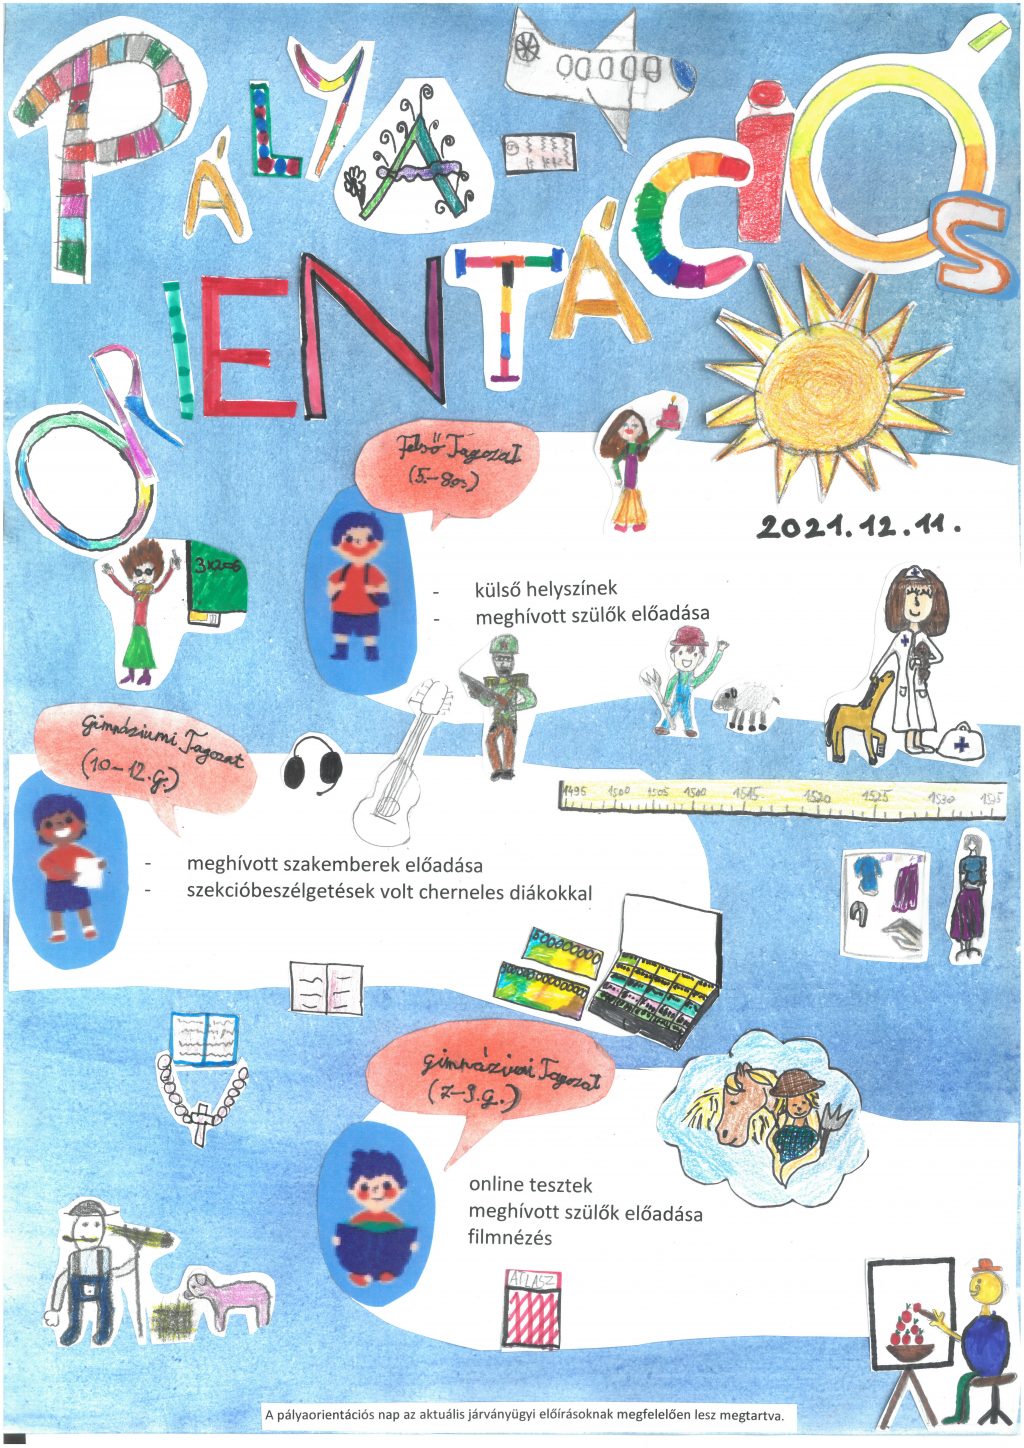 PÁLYA
ORIENTÁCIÓS
Felső Tagozat
(5.-8os.)
2021.12.11.
3x2=6
- külső helyszínek
- meghívott szülők előadása
Gimnáziumi Tagozat
(10-12.g.)
1495 1500 1505 1500 1515 1520 1525 1530 1535
- meghívott szakemberek előadása
- szekcióbeszélgetések volt cherneles diákokkal
gimnáziumi Tagozat
(7-9.g.)
online tesztek
meghívott szülők előadása
filmnézés
ATLASZ
A pályaorientációs nap az aktuális járványügyi előírásoknak megfelelően lesz megtartva.